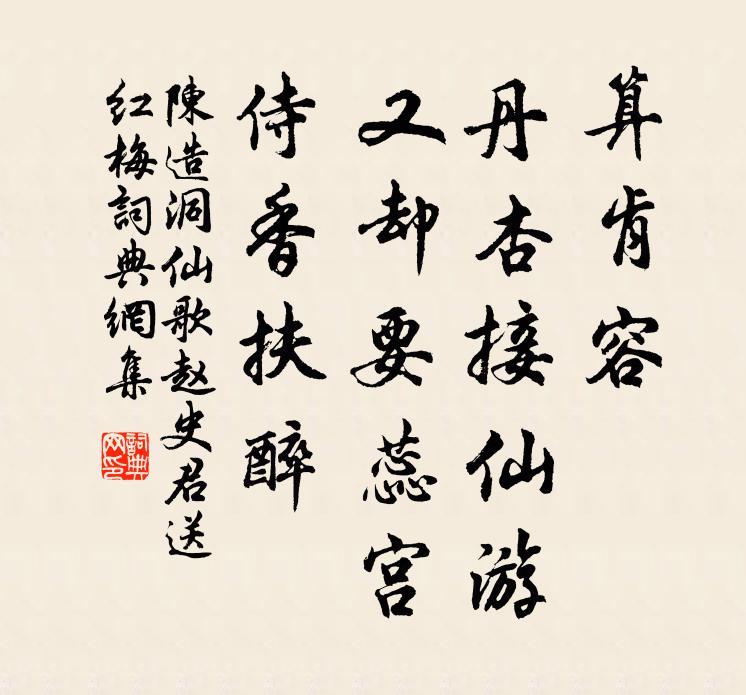 算肯容
丹杏接仙游
又却要蕊宫
侍香扶醉
陳造洞仙歌赵史君送
红梅詞典網集
詞典網印